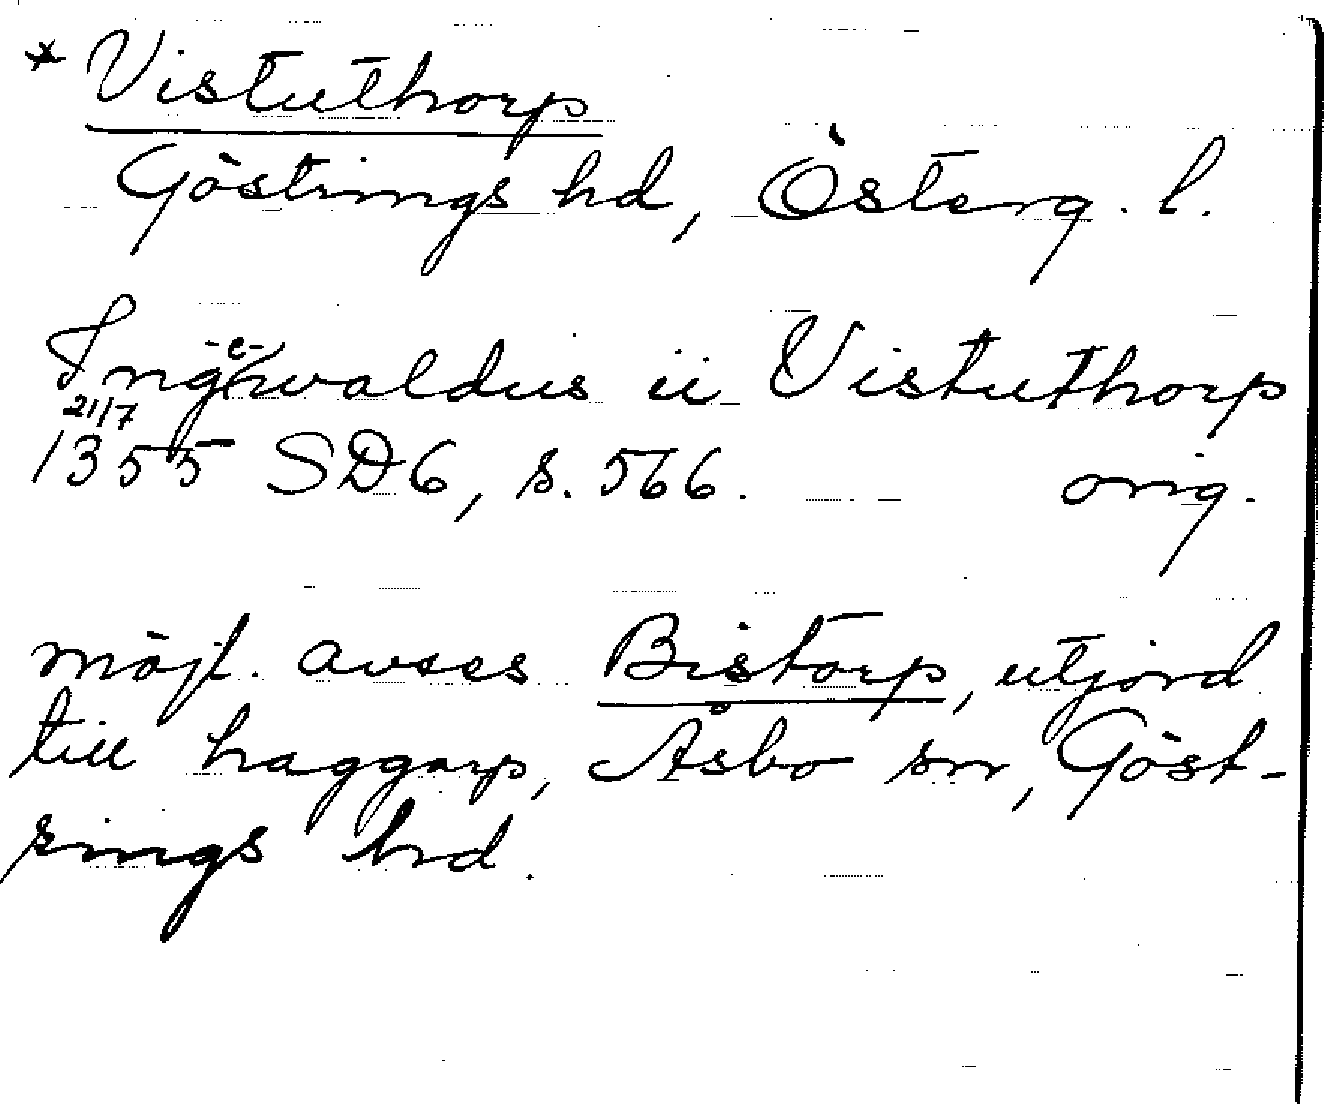 * Vistuthorp
Göstrings hd, Österg. l.
Ingewaldus ii Vistuthorp
21/7
1355 SD6, s. 566. orig.
möjl. avses Bistorp, utjord
till haggarp, Åsbo sn, Göst-
rings hd.